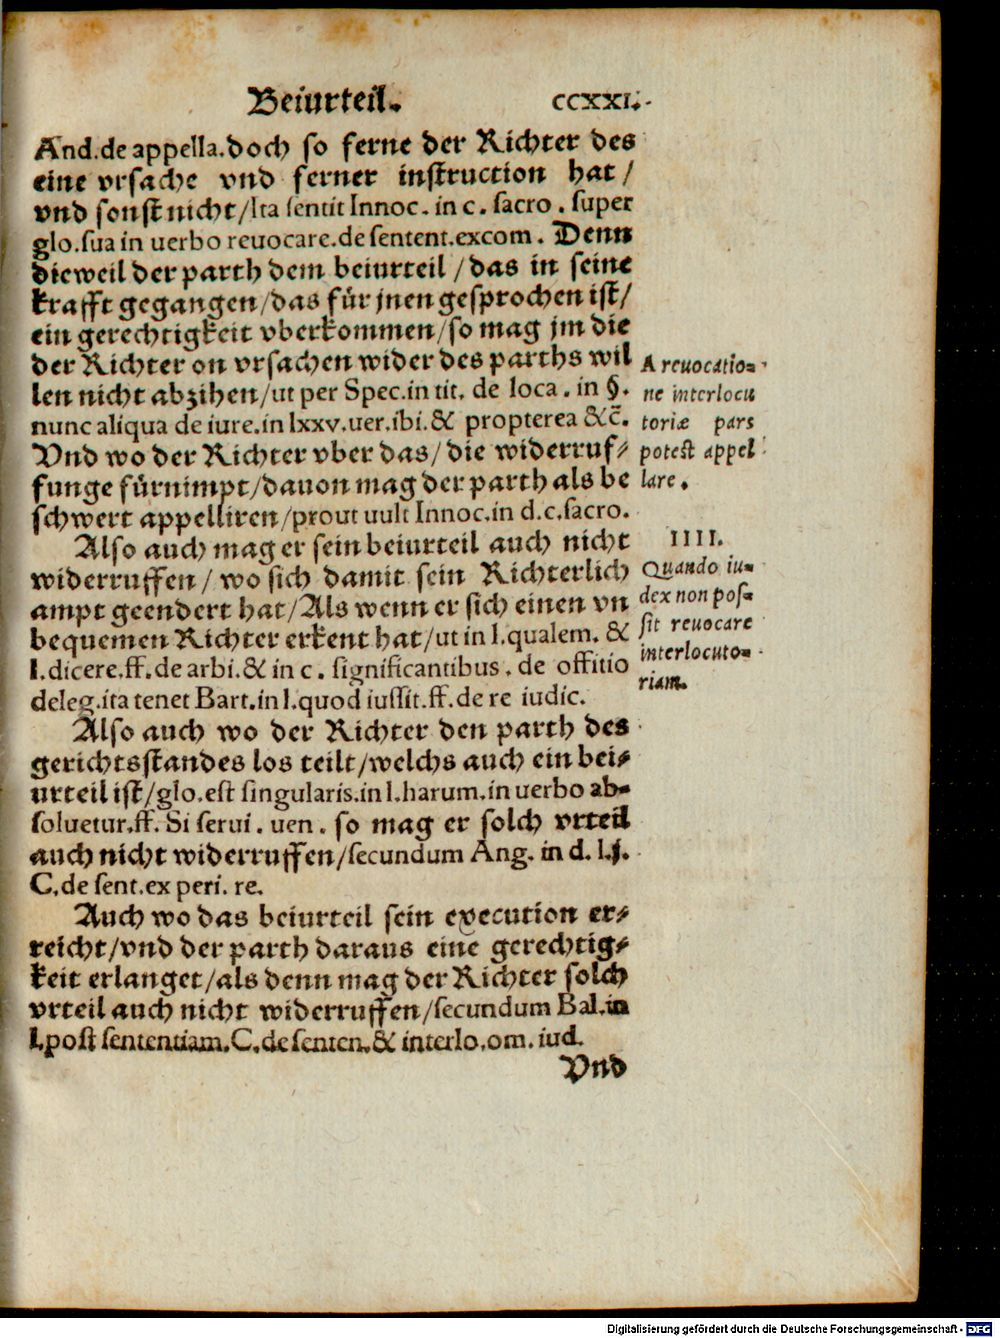 Beiurteil. CCXXI.
And.de appella.doch so ferne der Richter des
eine vrsache vnd ferner instruction hat/
vnd sonst nicht/Ita sentit Innoc. in c. sacro. super
glo.sua in uerbo reuocare.de sentent.excom. Denn
dieweil der parth dem beiurteil/das in seine
krafft gegangen/das für jnen gesprochen ist/
ein gerechtigkeit vberkommen/so mag jm die
der Richter on vrsachen wider des parths wil
len nicht abzihen/ut per Spec.in tit. de loca. in §.
nunc aliqua de iure.in lxxv.uer.ibi.& propterea &c̃.
Vnd wo der Richter vber das/die widerruf-
funge fürnimpt/dauon mag der parth als be
schwert appelliren/prout uult Innoc.in d.c.sacro.
Also auch mag er sein beiurteil auch nicht
widerruffen/wo sich damit sein Richterlich
ampt geendert hat/Als wenn er sich einen vn
bequemen Richter erkent hat/ut in l.qualem. &
l.dicere.ff.de arbi.& in c. significantibus. de offitio
deleg.ita tenet Bart.in l.quod iussit.ff.de re iudic.
Also auch wo der Richter den parth des
gerichtsstandes los teilt/welchs auch ein bei-
urteil ist/glo.est singularis.in l.harum.in uerbo ab-
soluetur.ff. Si serui. uen. so mag er solch vrteil
auch nicht widerruffen/secundum Ang. in d. l.j.
C.de sent.ex peri. re.
Auch wo das beiurteil sein execution er-
reicht/vnd der parth daraus eine gerechtig-
keit erlanget/als denn mag der Richter solch
vrteil auch nicht widerruffen/secundum Bal.in
l.post sententiam.C.de senten.& interlo.om. iud.
Vnd
A reuocatio-
ne interlocu
toriæ pars
potest appel
lare.
IIII.
Quando iu-
dex non pos-
sit reuocare
interlocuto-
riam.
Digitalisierung gefördert durch die Deutsche Forschungsgemeinschaft - DFG